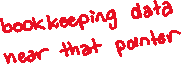 bookkeeping data
near that pointer